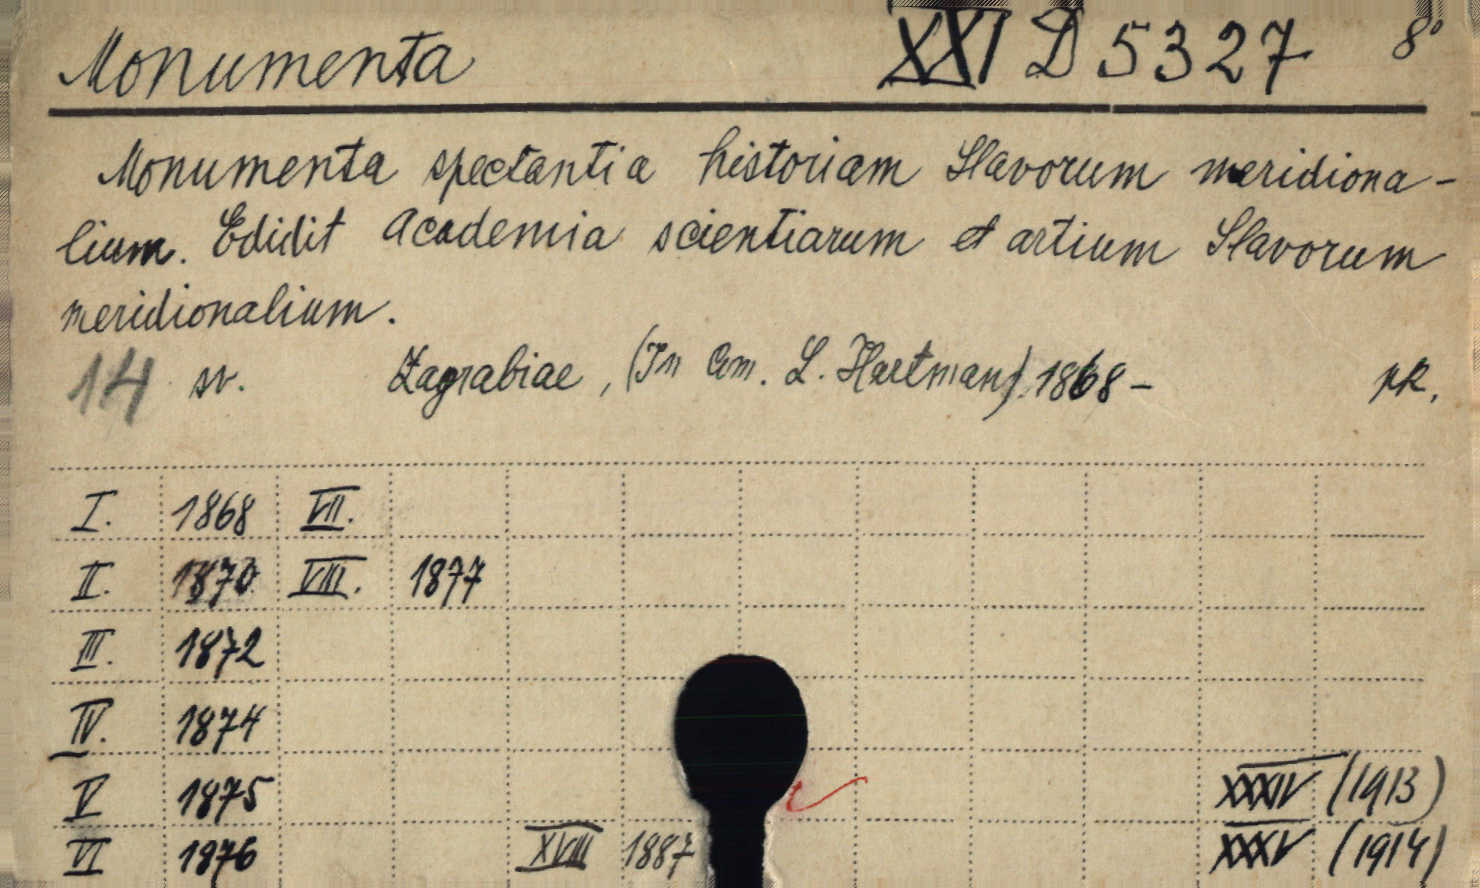 Monumenta XXI D 5327 8°
Monumenta spectantia historiam Slavorum meridiona-
lium. Edidit Academia scientiarum et artium Slavorum
meridionalium.
14 sv. Zagrabiae, (In Com. L. Hartman) 1868- pk.
I. 1868 VII.
II. 1870 VIII. 1877
III. 1872
IV. 1874
V 1875 XXXIV (1913)
VI 1876 XVIII 1887 XXXV (1914)